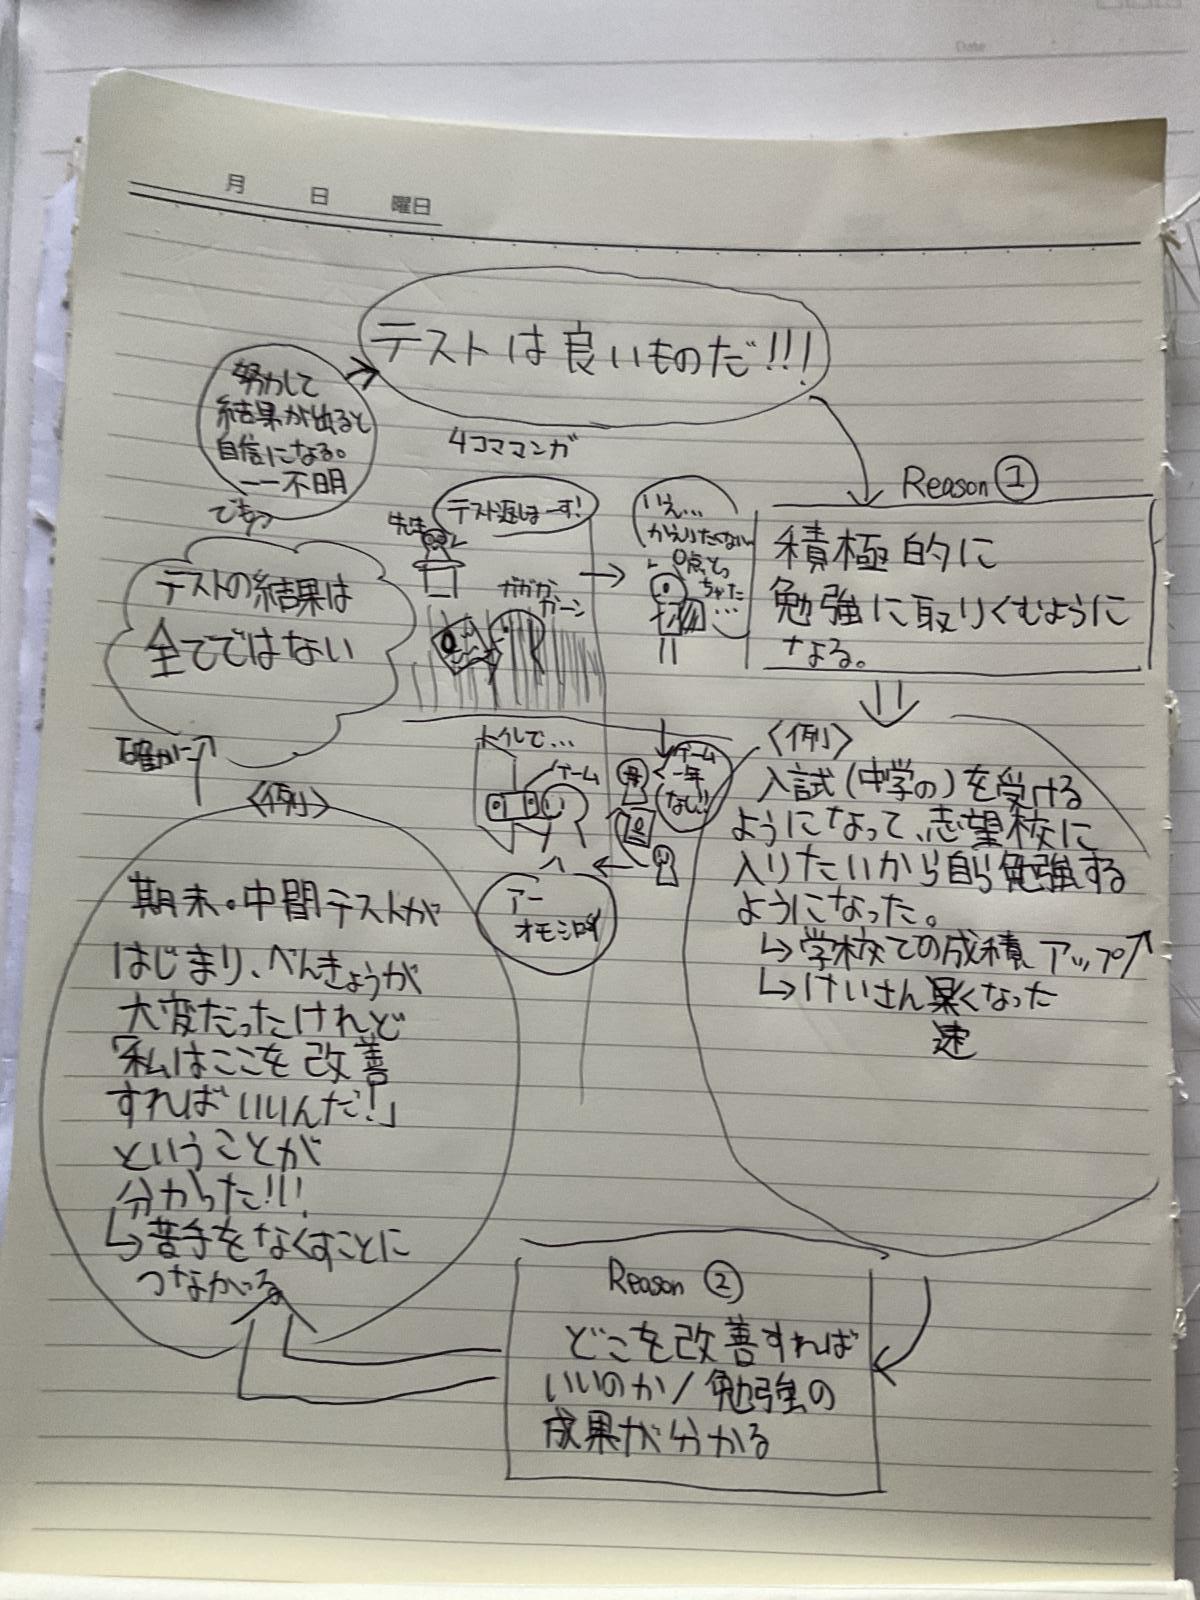 Date
月 日 曜日
テストは良いものだ!!!
努力して
結果が出ると
自信になる。
ー一不明
でもっ
テストの結果は
全てではない
確かに
4コママンガ
先生
テスト返しまーす!
ガガガ
ガーン
いえ…
かえりたくない
0点とっ
ちゃた
…
母
ゲーム
一年
なし!!
トイレで…
ゲーム
アー
オモシロイ
Reason ①
積極的に
勉強に取りくむように
なる。
〈例〉
入試(中学の)を受ける
ようになって、志望校に
入りたいから自ら勉強する
ようになった。
↳学校での成績アップ↗
↳けいさん早くなった
速
Reason ②
どこを改善すれば
いいのか/勉強の
成果が分かる
〈例〉
期末・中間テストが
はじまり、べんきょうが
大変だったけれど
「私はここを改善
すればいいんだ!」
ということが
分かった!!!
↳苦手をなくすことに
つながる